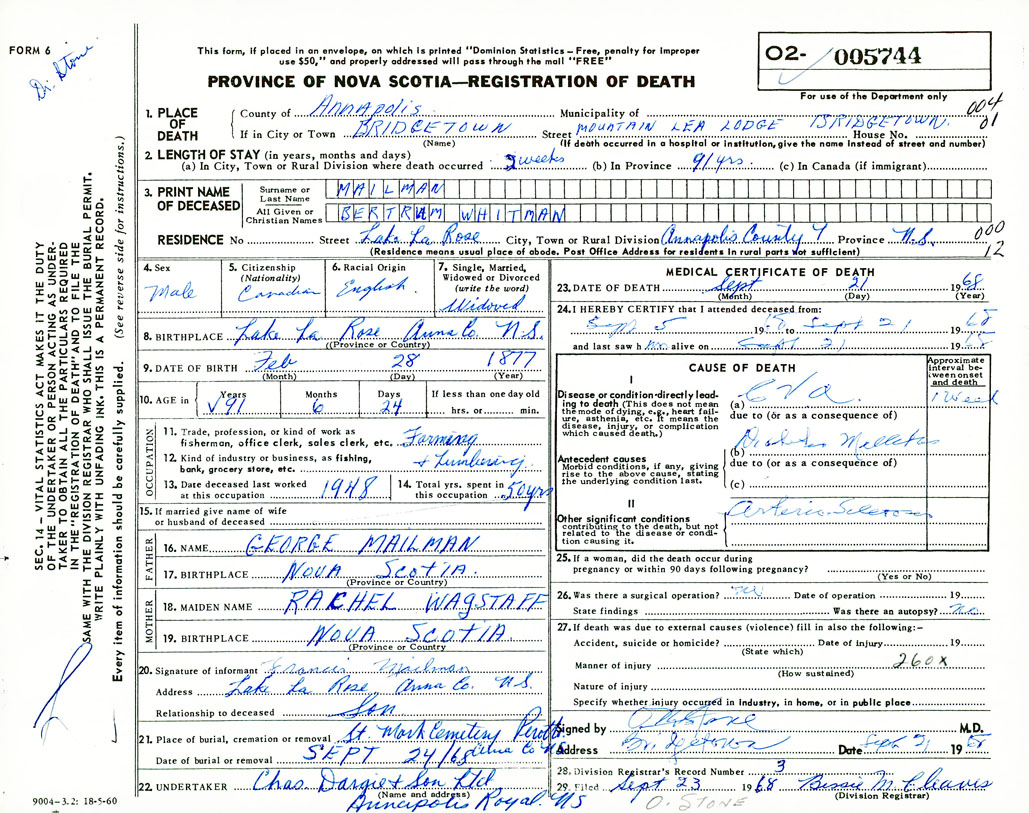 FORM 6
Dr. Stone
This form, if placed in an envelope, on which is printed "Dominion Statistics – Free, penalty for improper
use $50," and properly addressed will pass through the mail "FREE"
PROVINCE OF NOVA SCOTIA—REGISTRATION OF DEATH
O2- 005744
For use of the Department only
004
01
SEC. 14 – VITAL STATISTICS ACT MAKES IT THE DUTY
OF THE UNDERTAKER OR PERSON ACTING AS UNDER-
TAKER TO OBTAIN ALL THE PARTICULARS REQUIRED
IN THE "REGISTRATION OF DEATH" AND TO FILE THE
SAME WITH THE DIVISION REGISTRAR WHO SHALL ISSUE THE BURIAL PERMIT.
WRITE PLAINLY WITH UNFADING INK. THIS IS A PERMANENT RECORD.
Every item of information should be carefully supplied. (See reverse side for instructions.)
1. PLACE OF DEATH
County of Annapolis Municipality of
If in City or Town BRIDGETOWN Street MOUNTAIN LEA LODGE BRIDGETOWN. House No.
(Name) (If death occurred in a hospital or institution, give the name instead of street and number)
2. LENGTH OF STAY (in years, months and days)
(a) In City, Town or Rural Division where death occurred 2 weeks (b) In Province 91 yrs. (c) In Canada (if immigrant)
3. PRINT NAME OF DECEASED
Surname or Last Name MAILMAN
All Given or Christian Names BERTRAM WHITMAN
RESIDENCE No Street Lake La Rose City, Town or Rural Division Annapolis County Province N.S.
000
12
(Residence means usual place of abode. Post Office Address for residents in rural parts not sufficient)
4. Sex
Male
5. Citizenship
(Nationality)
Canadian
6. Racial Origin
English.
7. Single, Married,
Widowed or Divorced
(write the word)
Widoved
8. BIRTHPLACE Lake La Rose Anna Co. N.S.
((Province or Country)
9. DATE OF BIRTH Feb 28 1877
(Month) (Day) (Year)
10. AGE in
Years 91
Months 6
Days 24
If less than one day old
hrs. or min.
OCCUPATION
11. Trade, profession, or kind of work as
fisherman, office clerk, sales clerk, etc. Farming
12. Kind of industry or business, as fishing,
bank, grocery store, etc. + Lumbering.
13. Date deceased last worked
at this occupation 1948
14. Total yrs. spent in
this occupation 50 yrs
15. If married give name of wife
or husband of deceased
FATHER
16. NAME GEORGE MAILMAN
17. BIRTHPLACE NOVA SCOTIA.
(Province or Country)
MOTHER
18. MAIDEN NAME RACHEL WAGSTAFF
19. BIRTHPLACE NOVA SCOTIA.
(Province or Country
20. Signature of informant Francis Mailman
Address Lake La Rose, Anna Co. N.S.
Relationship to deceased Son
21. Place of burial, cremation or removal St. Mark Cemetery Perotte
Anna Co NS
Date of burial or removal SEPT 24/68
22. UNDERTAKER Chas. Dargie + Son Ltd
(Name and address)
Annapolis Royal. NS
9004–3.2: 18-5-60
MEDICAL CERTIFICATE OF DEATH
23. DATE OF DEATH Sept 21 1968
(Month) (Day) (Year)
24. I HEREBY CERTIFY that I attended deceased from:
Sept 5 19 68 to Sept 21 19 68
and last saw him alive on Sept 21 19 68
CAUSE OF DEATH
Approximate
interval be-
tween onset
and death
I
Disease or condition directly lead-
ing to death (This does not mean
the mode of dying, e.g., heart fail-
ure, asthenia, etc. It means the
disease, injury, or complication
which caused death.)
(a) CVA. 1 Week
due to (or as a consequence of)
(b) Diabetes Mellitus
Antecedent causes
Morbid conditions, if any, giving
rise to the above cause, stating
the underlying condition last.
due to (or as a consequence of)
(c)
II
Other significant conditions
contributing to the death, but not
related to the disease or condi-
tion causing it.
Arterio-Sclerosis
25. If a woman, did the death occur during
pregnancy or within 90 days following pregnancy?
(Yes or No)
26. Was there a surgical operation? No Date of operation 19
State findings Was there an autopsy? No
27. If death was due to external causes (violence) fill in also the following:–
Accident, suicide or homicide? Date of injury 19
(State which)
Manner of injury 260X
(How sustained)
Nature of injury
Specify whether injury occurred in industry, in home, or in public place
Signed by Stone M.D.
Address Bridgetown Date Sept 21 19 68
28. Division Registrar's Record Number 3
29. Filed Sept 23 1968 Bessie M. Cleaves
(Division Registrar)
O. STONE